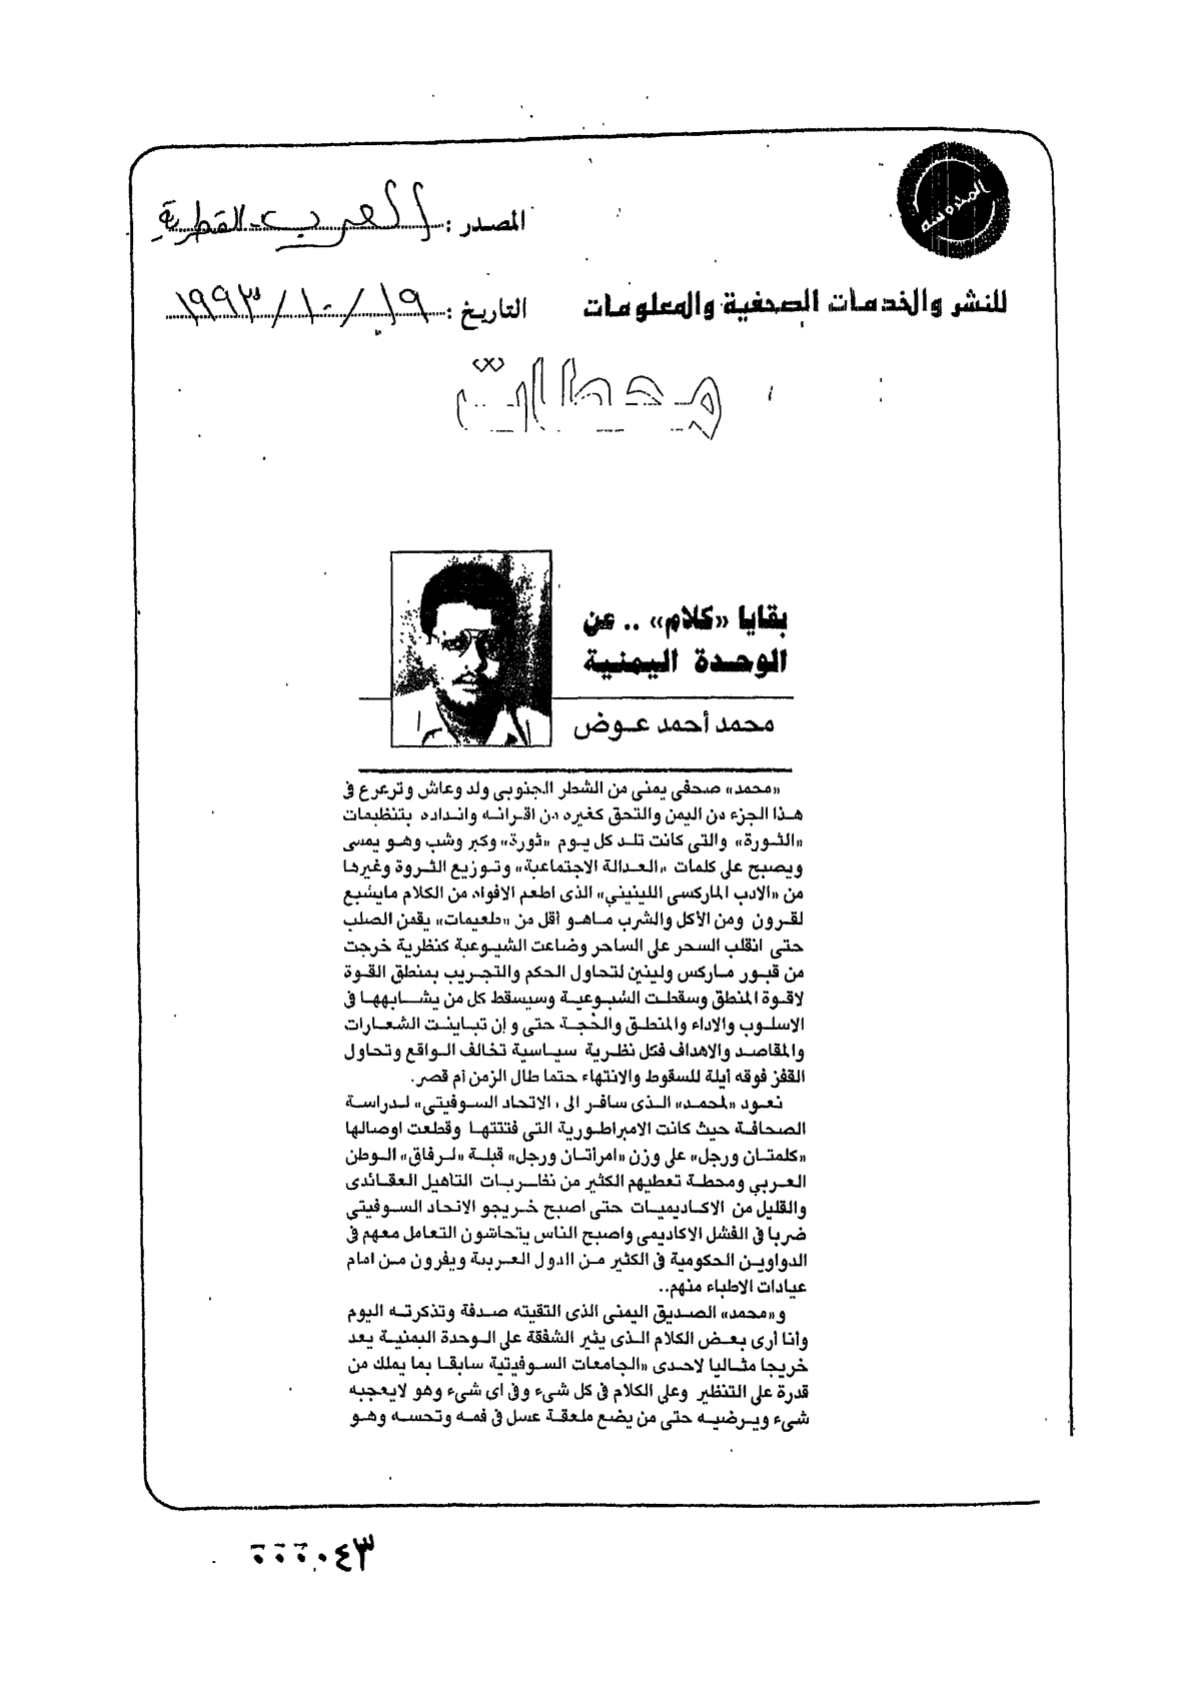 المحروسة
المصدر : العرب القطرية
للنشر والخدمات الصحفية والمعلومات
التاريخ : ١٩ / ١٠ / ١٩٩٣
محطات
بقايا «كلام» .. عن
الوحدة اليمنية
محمد أحمد عوض
«محمد» صحفى يمنى من الشطر الجنوبى ولد وعاش وترعرع فى
هذا الجزء من اليمن والتحق كغيره من اقرانه وانداده بتنظيمات
«الثورة» والتى كانت تلد كل يوم «ثورة» وكبر وشب وهو يمسى
ويصبح على كلمات «العدالة الاجتماعية» وتوزيع الثروة وغيرها
من «الادب الماركسى اللينيني» الذى اطعم الافواه من الكلام مايشبع
لقرون ومن الأكل والشرب ماهو أقل من «طعيمات» يقمن الصلب
حتى انقلب السحر على الساحر وضاعت الشيوعية كنظرية خرجت
من قبور ماركس ولينين لتحاول الحكم والتجريب بمنطق القوة
لاقوة المنطق وسقطت الشيوعية وسيسقط كل من يشابهها فى
الاسلوب والاداء والمنطق والحجة حتى وإن تباينت الشعارات
والمقاصد والاهداف فكل نظرية سياسية تخالف الواقع وتحاول
القفز فوقه أيلة للسقوط والانتهاء حتما طال الزمن أم قصر.
نعود «لمحمد» الذى سافر الى «الاتحاد السوفيتى» لدراسة
الصحافة حيث كانت الامبراطورية التى فتتتها وقطعت اوصالها
«كلمتان ورجل» على وزن «امرأتان ورجل» قبلة «لرفاق» الوطن
العربي ومحطة تعطيهم الكثير من نظريات التاهيل العقائدى
والقليل من الاكاديميات حتى اصبح خريجو الاتحاد السوفيتى
ضربا فى الفشل الاكاديمى واصبح الناس يتحاشون التعامل معهم فى
الدواوين الحكومية فى الكثير من الدول العربية ويفرون من امام
عيادات الاطباء منهم..
و«محمد» الصديق اليمنى الذى التقيته صدفة وتذكرته اليوم
وأنا أرى بعض الكلام الذى يثير الشفقة على الوحدة اليمنية يعد
خريجا مثاليا لاحدى «الجامعات السوفيتية سابقا بما يملك من
قدرة على التنظير وعلى الكلام فى كل شىء وفى اى شىء وهو لايعجبه
شىء ويرضيه حتى من يضع ملعقة عسل فى فمه وتحسه وهو
٠٠٠٠٤٣